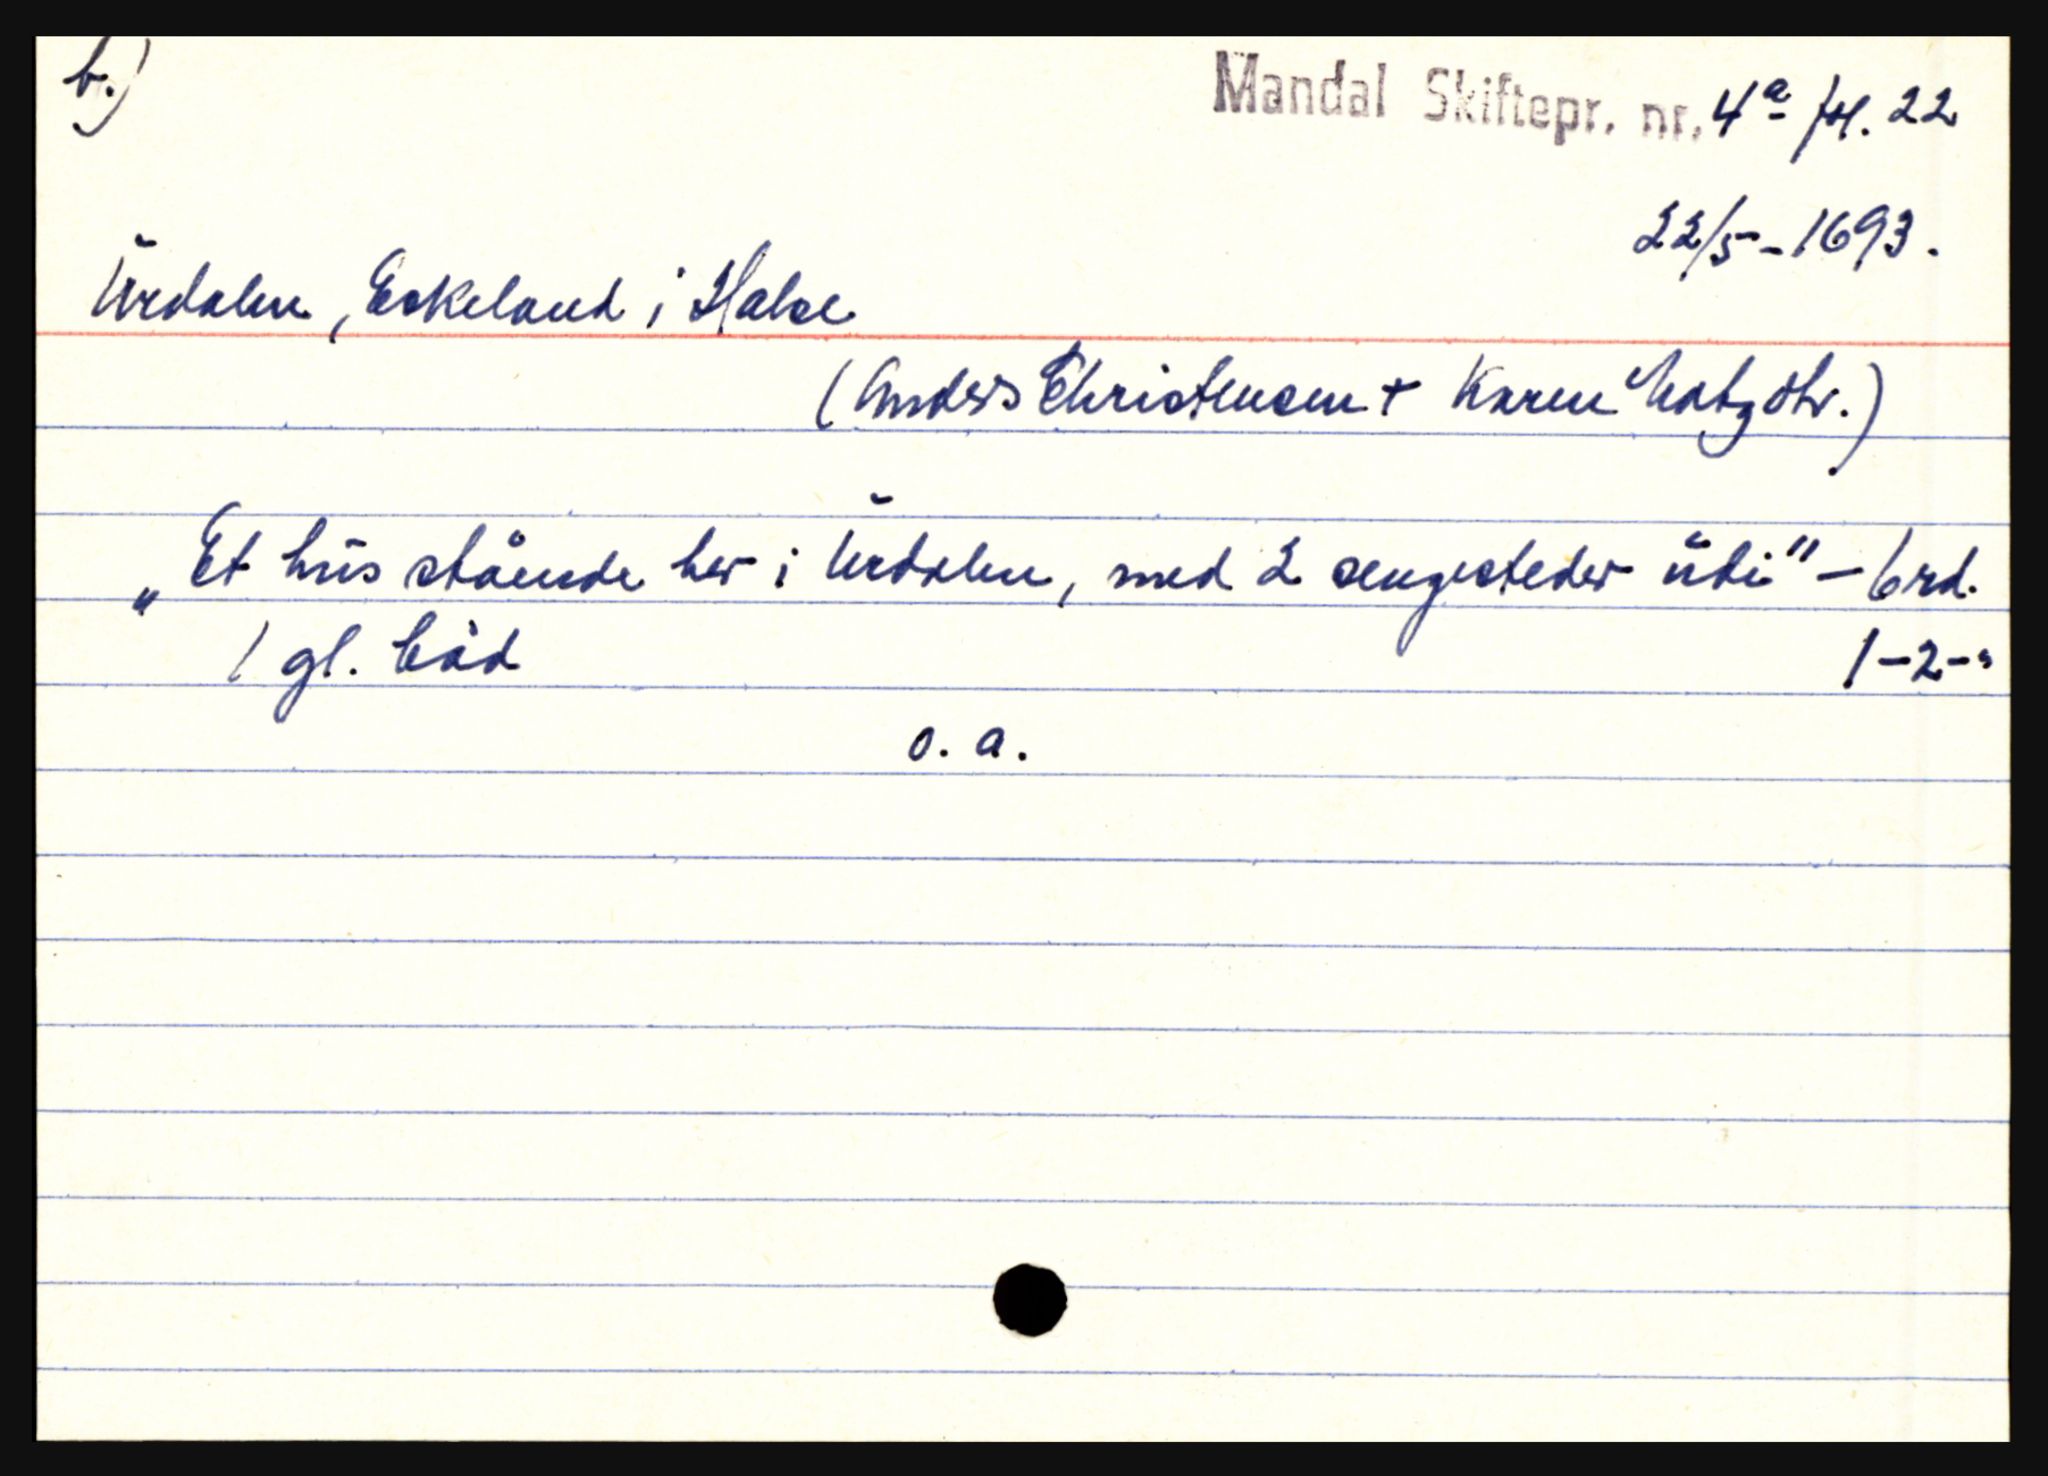 b.)
Mandal Skiftepr. nr. 4a fol. 22
22/5 - 1693.
Urdalen, Eskeland i Halse
(Anders Christensen + Karen Matzdtr.)
„Et hus stående her i Urdalen, med 2 sengesteder udi" - 6 rd.
1 gl. båd 1-2-"
o. a.